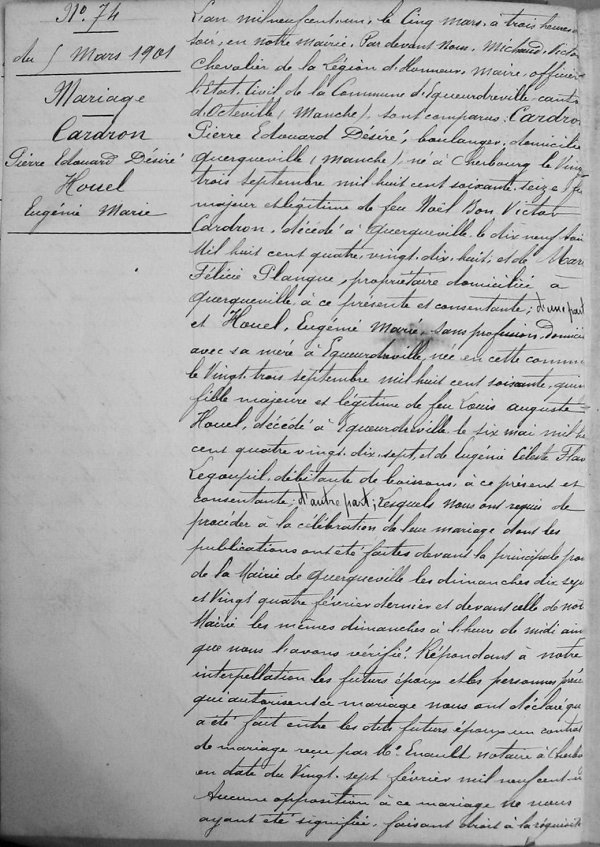 No. 74
du 5 Mars 1901
Mariage
Cardron
Pierre Edouard Désiré
Houel
Eugénie Marie
L'an mil neuf cent un, le Cinq mars, à trois heures
soir, en notre Mairie, Par devant Nous, Michaud, Victor
Chevalier de la Légion d'Honneur, Maire, officier
l'Etat Civil de la Commune d'Equeurdreville, canto
d'Octeville (Manche), sont comparus: Cardro
Pierre Edouard Désiré, boulanger, domicilié
Querqueville (Manche), né à Cherbourg le Ving
trois septembre mil huit cent soixante-seize,
majeur et légitime de feu Noël Bon Victor
Cardron, décédé à Querqueville, le dix neuf
Mil huit cent quatre-vingt-dix-huit, et de Mari
Félicie Plangue, propriétaire domiciliée à
Querqueville à ce présente et consentante; d'une part
et Houel, Eugénie Marie, sans profession, domici
avec sa mère à Equeurdreville, née en cette commun
le Vingt-trois septembre mil huit cent soixante, quin
fille majeure et légitime de feu Louis auguste
Houel, décédé à Equeurdreville, le six mai mil hu
cent quatre vingt-dix-sept, et de Eugénie Céleste Flav
Legoupil, débitante de boissons, à ce présent et
consentante; d'autre part; Lesquels nous ont requis de
procéder à la célébration de leur mariage dont les
publications ont été faites devant la principale por
de la Mairie de Querqueville les dimanches dix sep
et Vingt quatre février dernier et devant celle de not
Mairie les mêmes dimanches à l'heure de midi ain
que nous l'avons vérifié. Répondant à notre
interpellation les futurs époux et les personnes
qui autorisent ce mariage nous ont déclaré qu
a été fait entre les dits futurs époux un contrat
de mariage reçu par Me Enault notaire à Cherbo
en date du Vingt-sept février mil neuf cent
Aucune opposition à ce mariage ne nous
ayant été signifiée, faisant droit à la réquisiti